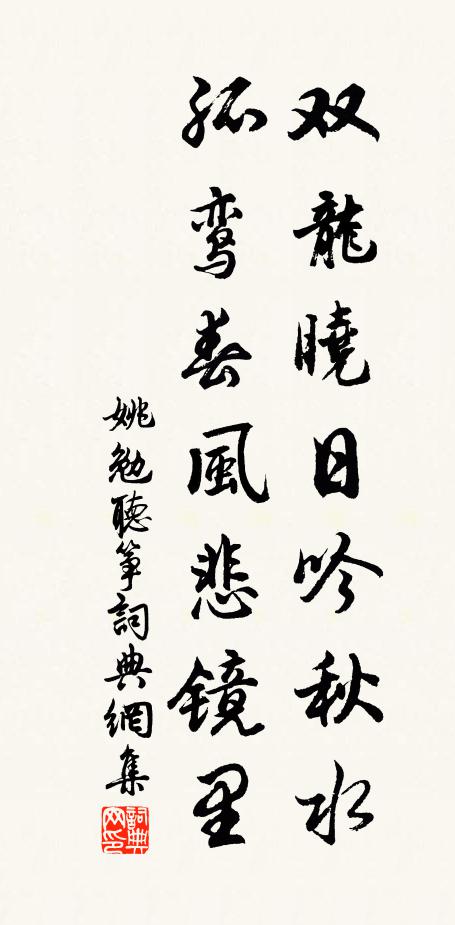 双龍曉日吟秋水
孤鸾春風悲镜里
姚勉聽筝詞典網集
詞典网印